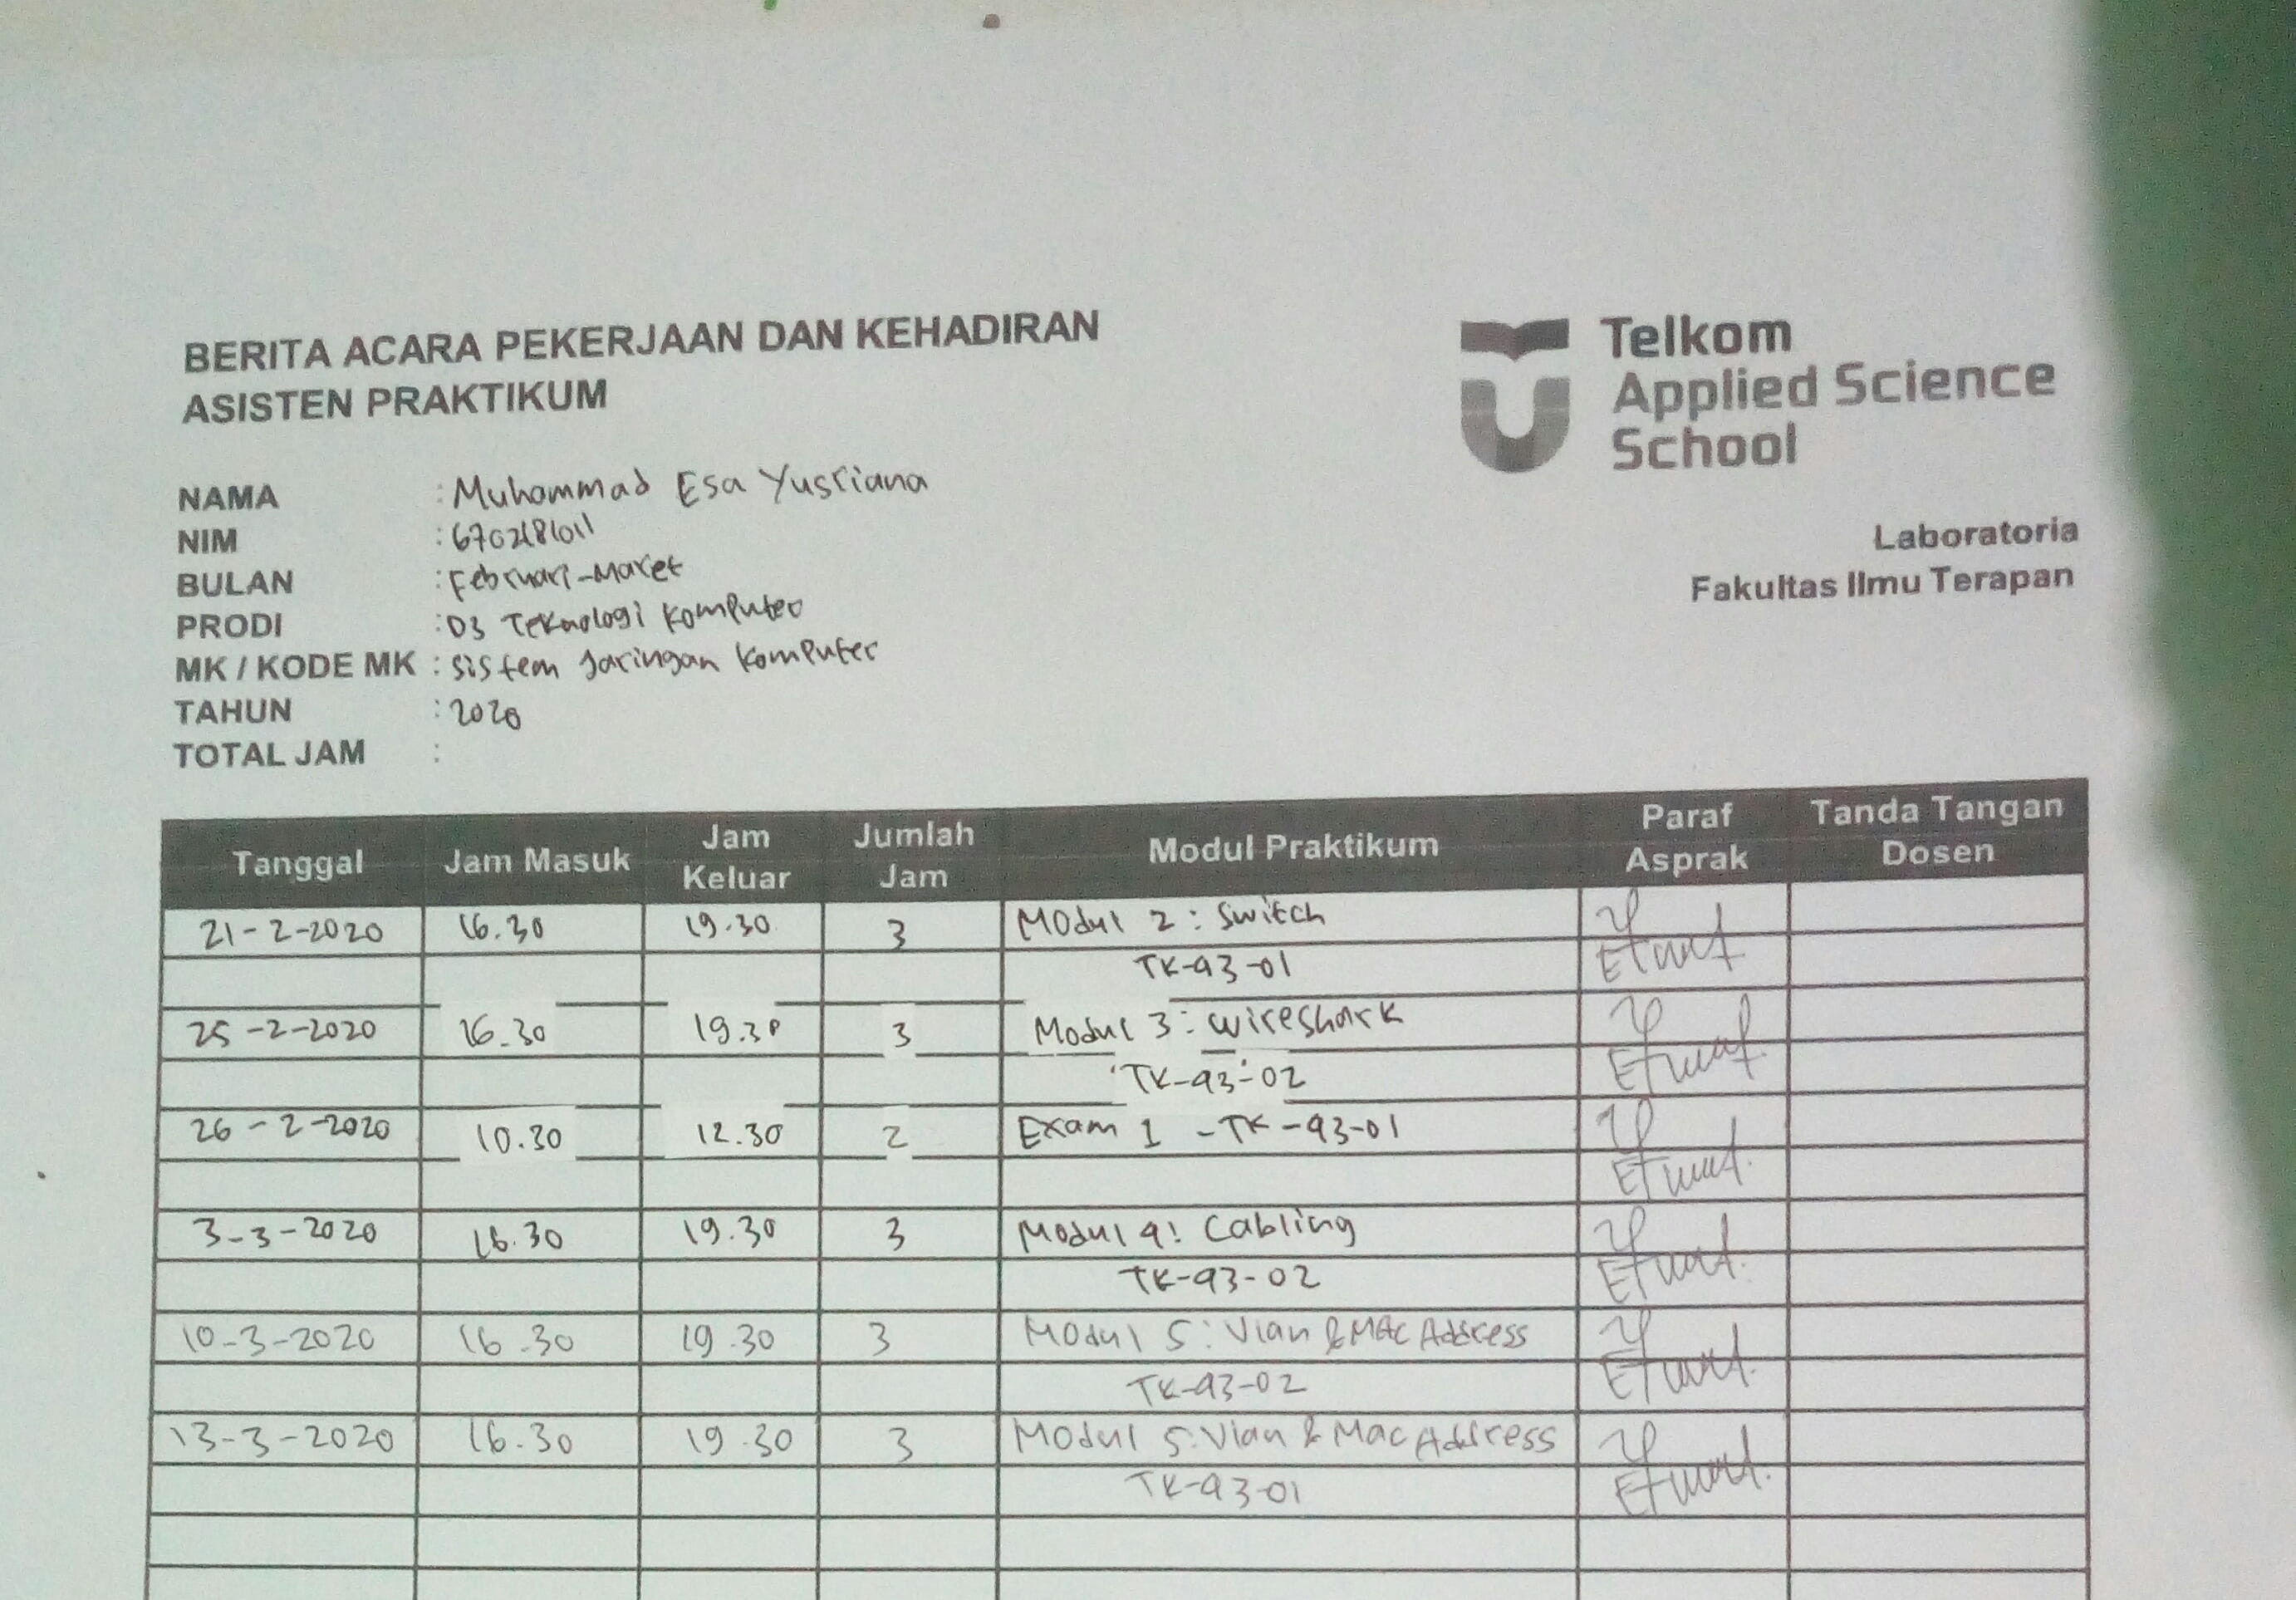 BERITA ACARA PEKERJAAN DAN KEHADIRAN
ASISTEN PRAKTIKUM
Telkom
Applied Science
School
Laboratoria
Fakultas Ilmu Terapan
NAMA : Muhammad Esa Yusriana
NIM : 6702181011
BULAN : Februari-Maret
PRODI : D3 Teknologi Komputer
MK / KODE MK : Sistem Jaringan Komputer
TAHUN : 2020
TOTAL JAM :
Tanggal Jam Masuk Jam Keluar Jumlah Jam Modul Praktikum Paraf Asprak Tanda Tangan Dosen
21-2-2020 16.30 19.30 3 Modul 2 : Switch
TK-43-01
25-2-2020 16.30 19.30 3 Modul 3 : Wireshark
TK-43-02
26-2-2020 10.30 12.30 2 Exam 1 - TK-43-01
3-3-2020 16.30 19.30 3 Modul 4 : Cabling
TK-43-02
10-3-2020 16.30 19.30 3 Modul 5 : Vlan & Mac Address
TK-43-02
13-3-2020 16.30 19.30 3 Modul 5 : Vlan & Mac Address
TK-43-01